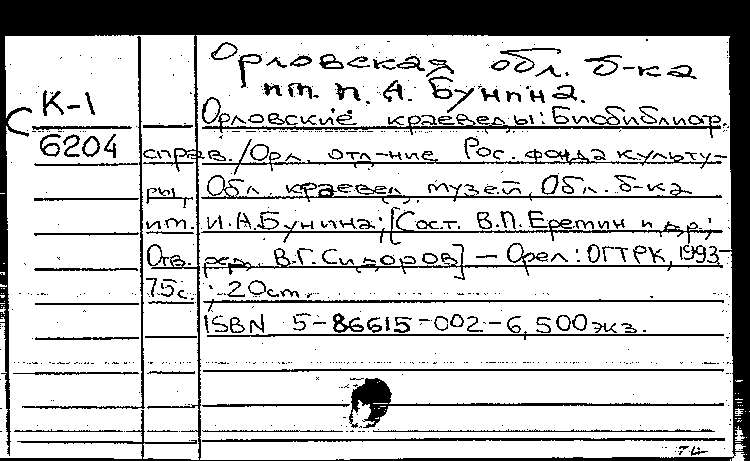 Орловская обл. б-ка
им. И. А. Бунина.
К-1
6204
Орловские краеведы: Биобиблиогр.
справ./Орл. отд-ние Рос. фонда культу-
ры, Обл. краевед. музей, Обл. б-ка
им. И.А.Бунина; [Сост. В.П.Еремин и др.;
Отв. ред. В.Г.Сидоров] — Орел: ОГТРК, 1993-
75с. ; 20см.
ISBN 5-86615-002-6, 500экз.